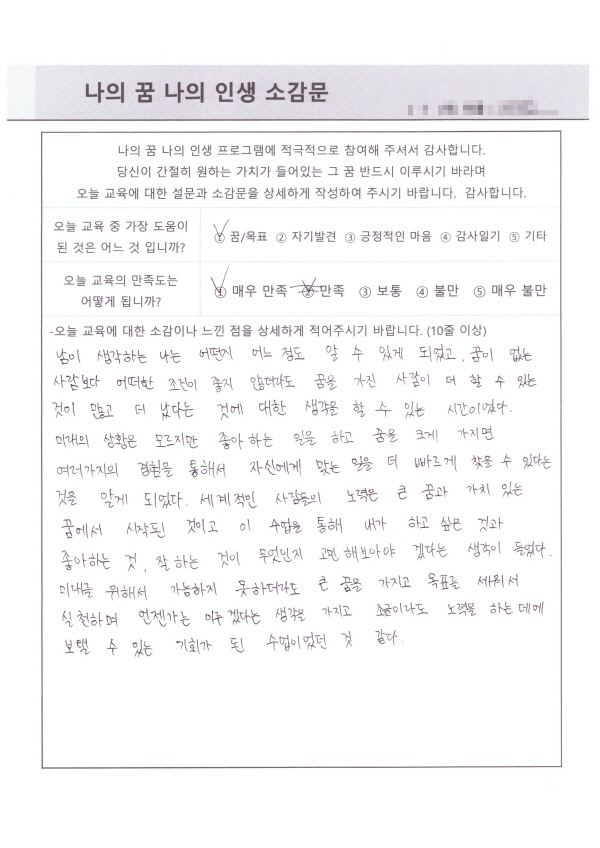 나의 꿈 나의 인생 소감문
나의 꿈 나의 인생 프로그램에 적극적으로 참여해 주셔서 감사합니다.
당신이 간절히 원하는 가치가 들어있는 그 꿈 반드시 이루시기 바라며
오늘 교육에 대한 설문과 소감문을 상세하게 작성하여 주시기 바랍니다. 감사합니다.
오늘 교육 중 가장 도움이
된 것은 어느 것 입니까?
① 꿈/목표 ② 자기발견 ③ 긍정적인 마음 ④ 감사일기 ⑤ 기타
오늘 교육의 만족도는
어떻게 됩니까?
① 매우 만족 ② 만족 ③ 보통 ④ 불만 ⑤ 매우 불만
-오늘 교육에 대한 소감이나 느낀 점을 상세하게 적어주시기 바랍니다. (10줄 이상)
남이 생각하는 나는 어떤지 어느 정도 알 수 있게 되었고, 꿈이 없는
사람보다 어떠한 조건이 좋지 않더라도 꿈을 가진 사람이 더 할 수 있는
것이 많고 더 낫다는 것에 대한 생각을 할 수 있는 시간이었다.
미래의 상황은 모르지만 좋아하는 일을 하고 꿈을 크게 가지면
여러가지의 경험을 통해서 자신에게 맞는 일을 더 빠르게 찾을 수 있다는
것을 알게 되었다. 세계적인 사람들의 노력은 큰 꿈과 가치 있는
꿈에서 시작된 것이고 이 수업을 통해 내가 하고 싶은 것과
좋아하는 것, 잘 하는 것이 무엇인지 고민 해보아야 겠다는 생각이 들었다.
미래를 위해서 가능하지 못하더라도 큰 꿈을 가지고 목표를 세워서
실천하며 언젠가는 이루겠다는 생각을 가지고 조금이라도 노력을 하는데에
보탤 수 있는 기회가 된 수업이었던 것 같다.